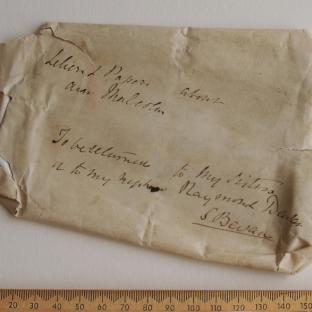 Letters & Papers about
dear Malcolm
To be returned to my Sisters
or to my nephew Raymond
S Bevan
20 30 40 50 60 70 80 90 100 110 120 130 140 150